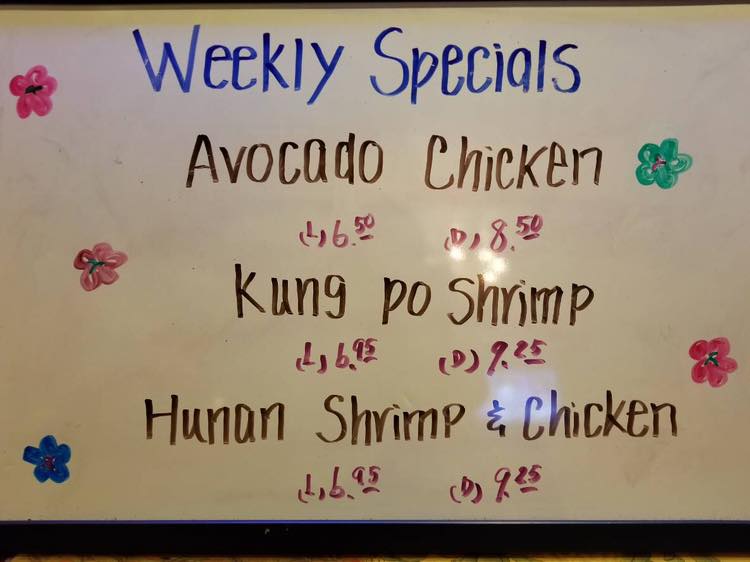 Weekly Specials
Avocado Chicken
(L) 6.50 (D) 8.50
Kung po Shrimp
(L) 6.95 (D) 9.25
Hunan Shrimp & Chicken
(L) 6.95 (D) 9.25